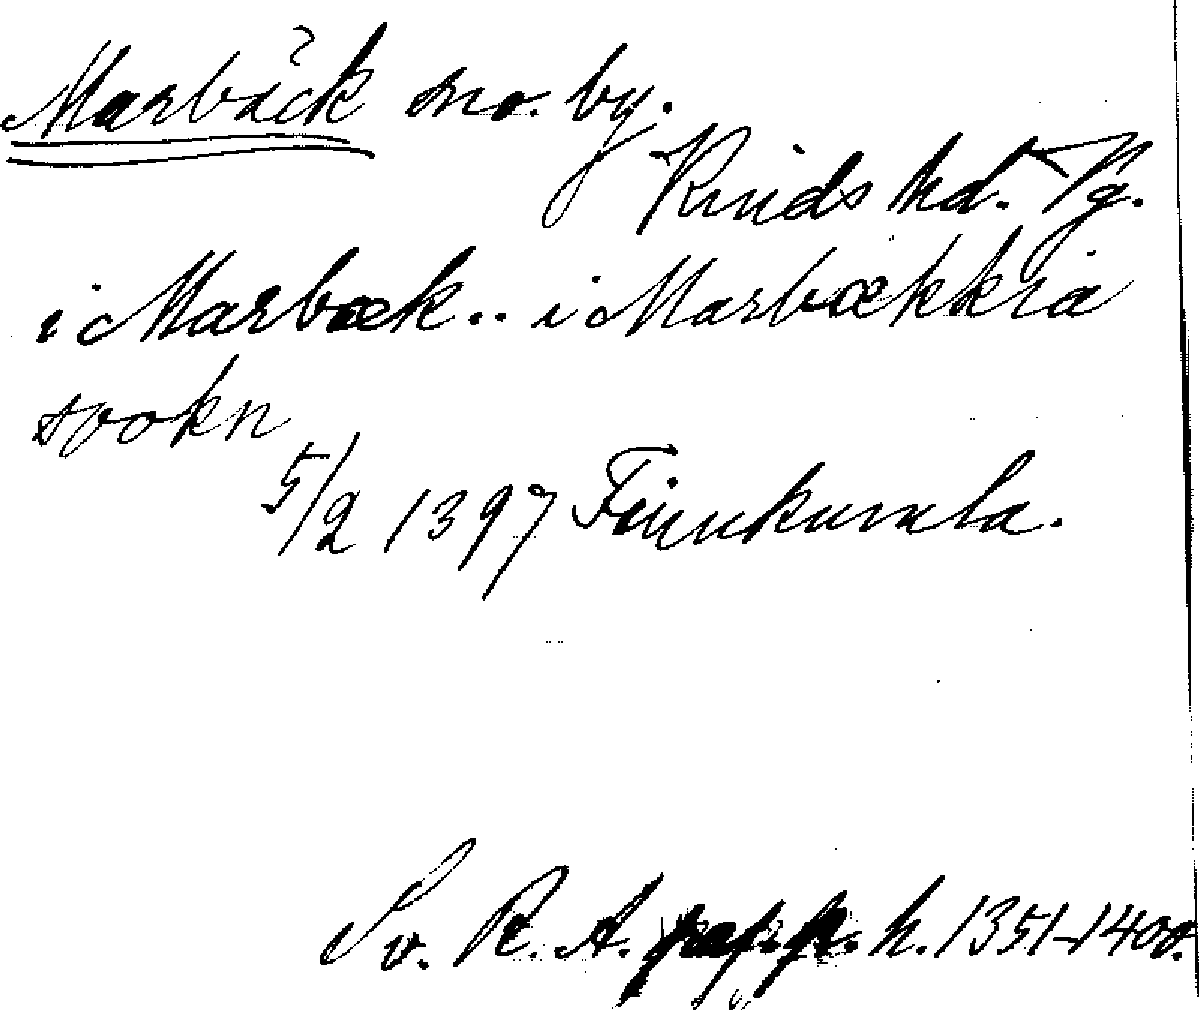 Marbäck sno. by.
Kinds hd. Vg.
i Marbæk.. i Marbækkia
sokn
5/2 1397 Finnkumla.
Sv. R. A. papp. h. 1351-1400.